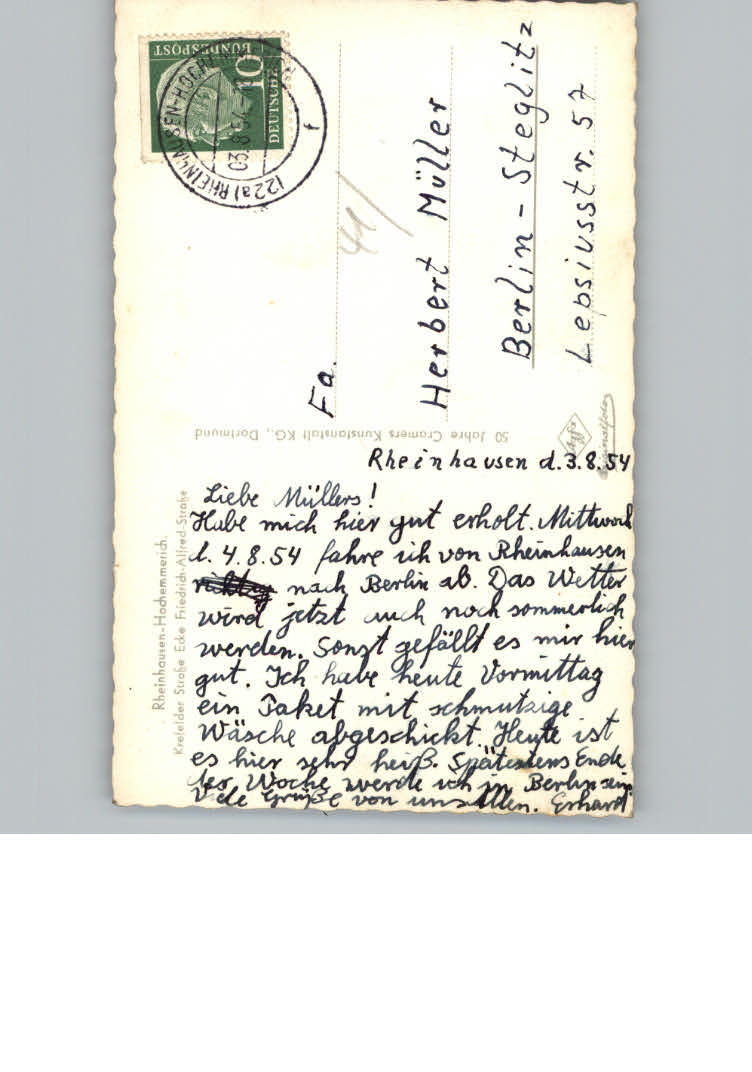 Rheinhausen d. 3.8.54
Liebe Müllers!
Habe mich hier gut erholt. Mittwoch
d. 4.8.54 fahre ich von Rheinhausen
nach Berlin ab. Das Wetter
wird jetzt auch noch sommerlich
werden. Sonst gefällt es mir hier
gut. Ich habe heute Vormittag
ein Paket mit schmutzige
Wäsche abgeschickt. Heute ist
es hier sehr heiß. Spätestens Ende
der Woche werde ich in Berlin sein
Viele Grüße von uns Allen. Erhard
Fa.
Herbert Müller
Berlin-Steglitz
Lepsiusstr. 57
41/
DEUTSCHE
BUNDESPOST
10
(22a) RHEINHAUSEN-HOCHEMMERICH
03.8.54
f
50 Jahre Cramers Kunstanstalt KG., Dortmund
Agfa
Originalfoto
Rheinhausen-Hochemmerich.
Krefelder Straße Ecke Friedrich-Alfred-Straße